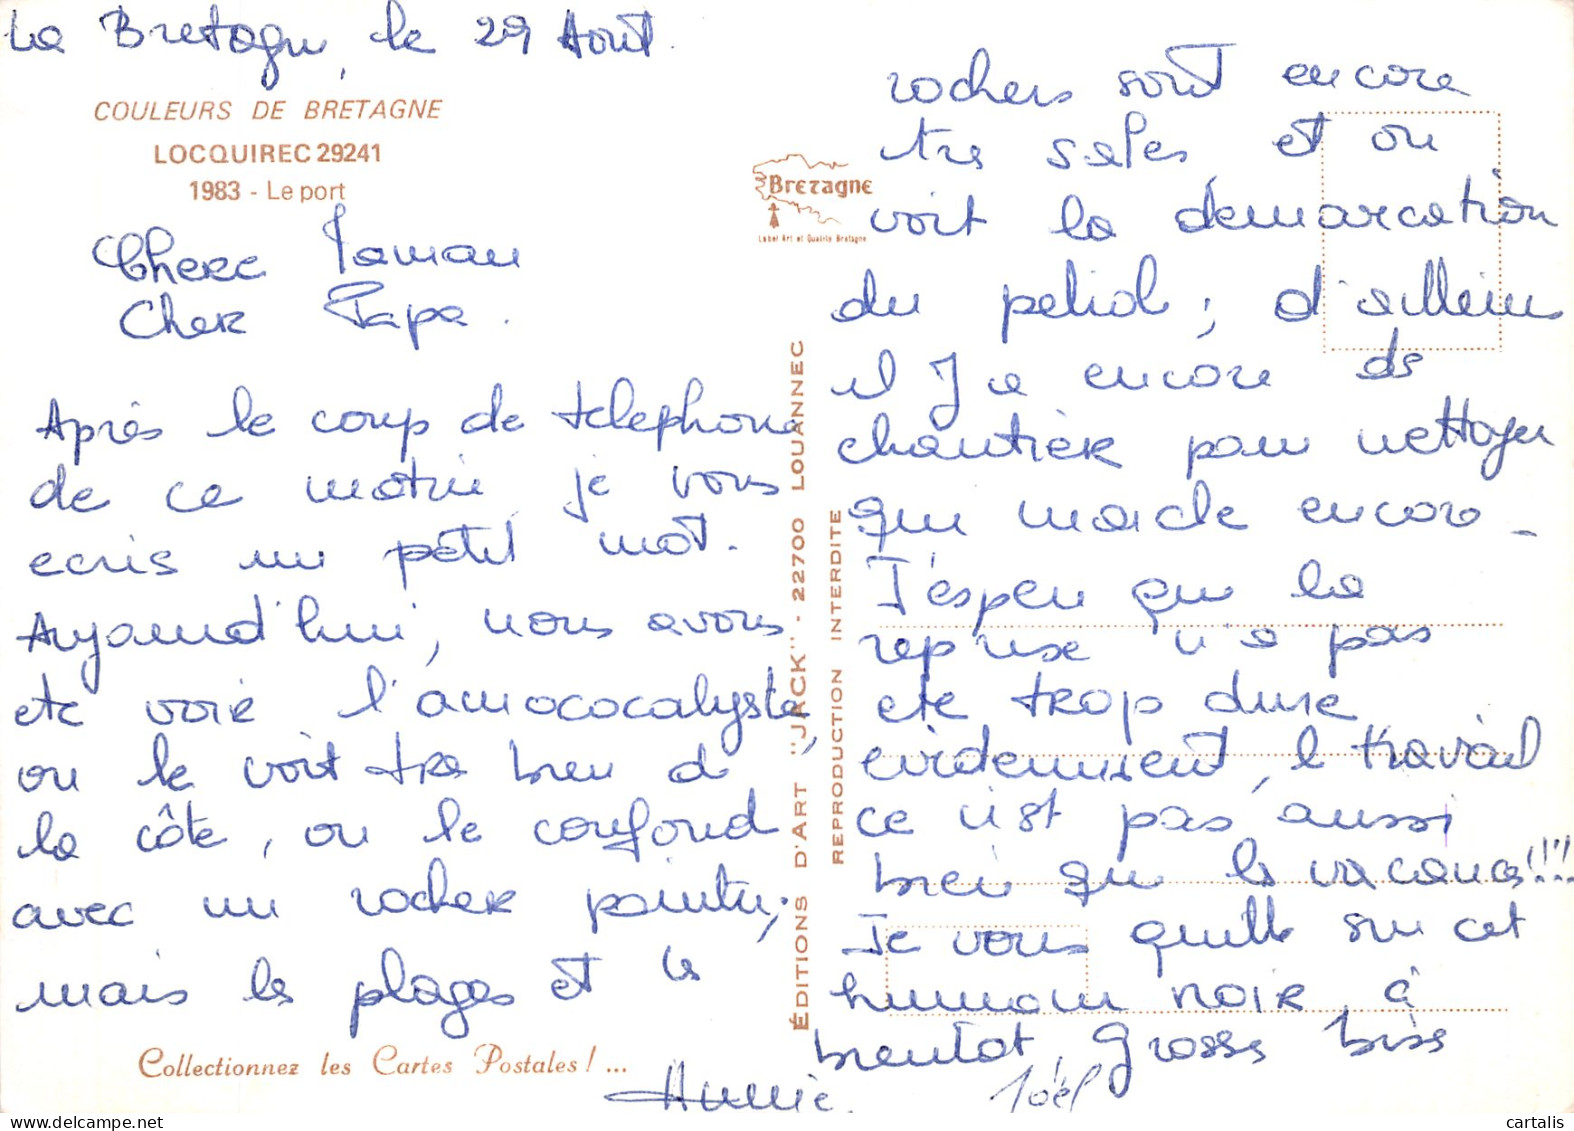 La Bretagne, le 29 Août.
COULEURS DE BRETAGNE
LOCQUIREC 29241
1983 - Le port
Chere Maman
Cher Papa.
Après le coup de telephone
de ce matin, je vous
ecris un petit mot.
Aujourd'hui, nous avons
ete voir l'amococalyste,
on le voit tres bien d
la côte, on le confond
avec un rocher pointu;
mais les plages et les
Collectionnez les Cartes Postales ! ...
Bretagne
Label Art et Qualité Bretagne
ÉDITIONS D'ART "JACK" - 22700 LOUANNEC
REPRODUCTION INTERDITE
rochers sont encore
tres sales, et on
voit la démarcation
du petrole; d'ailleurs
il y a encore ds
chantier pour nettoyer
qui marche encore -
J'espere que la
reprise n'a pas
ete trop dure
evidemment, le travail
ce n'est pas aussi
bien que les vacances!!!
Je vous quitte sur cet
humour noir à
bientot, grosses bises
Annie. Joël
cartalis